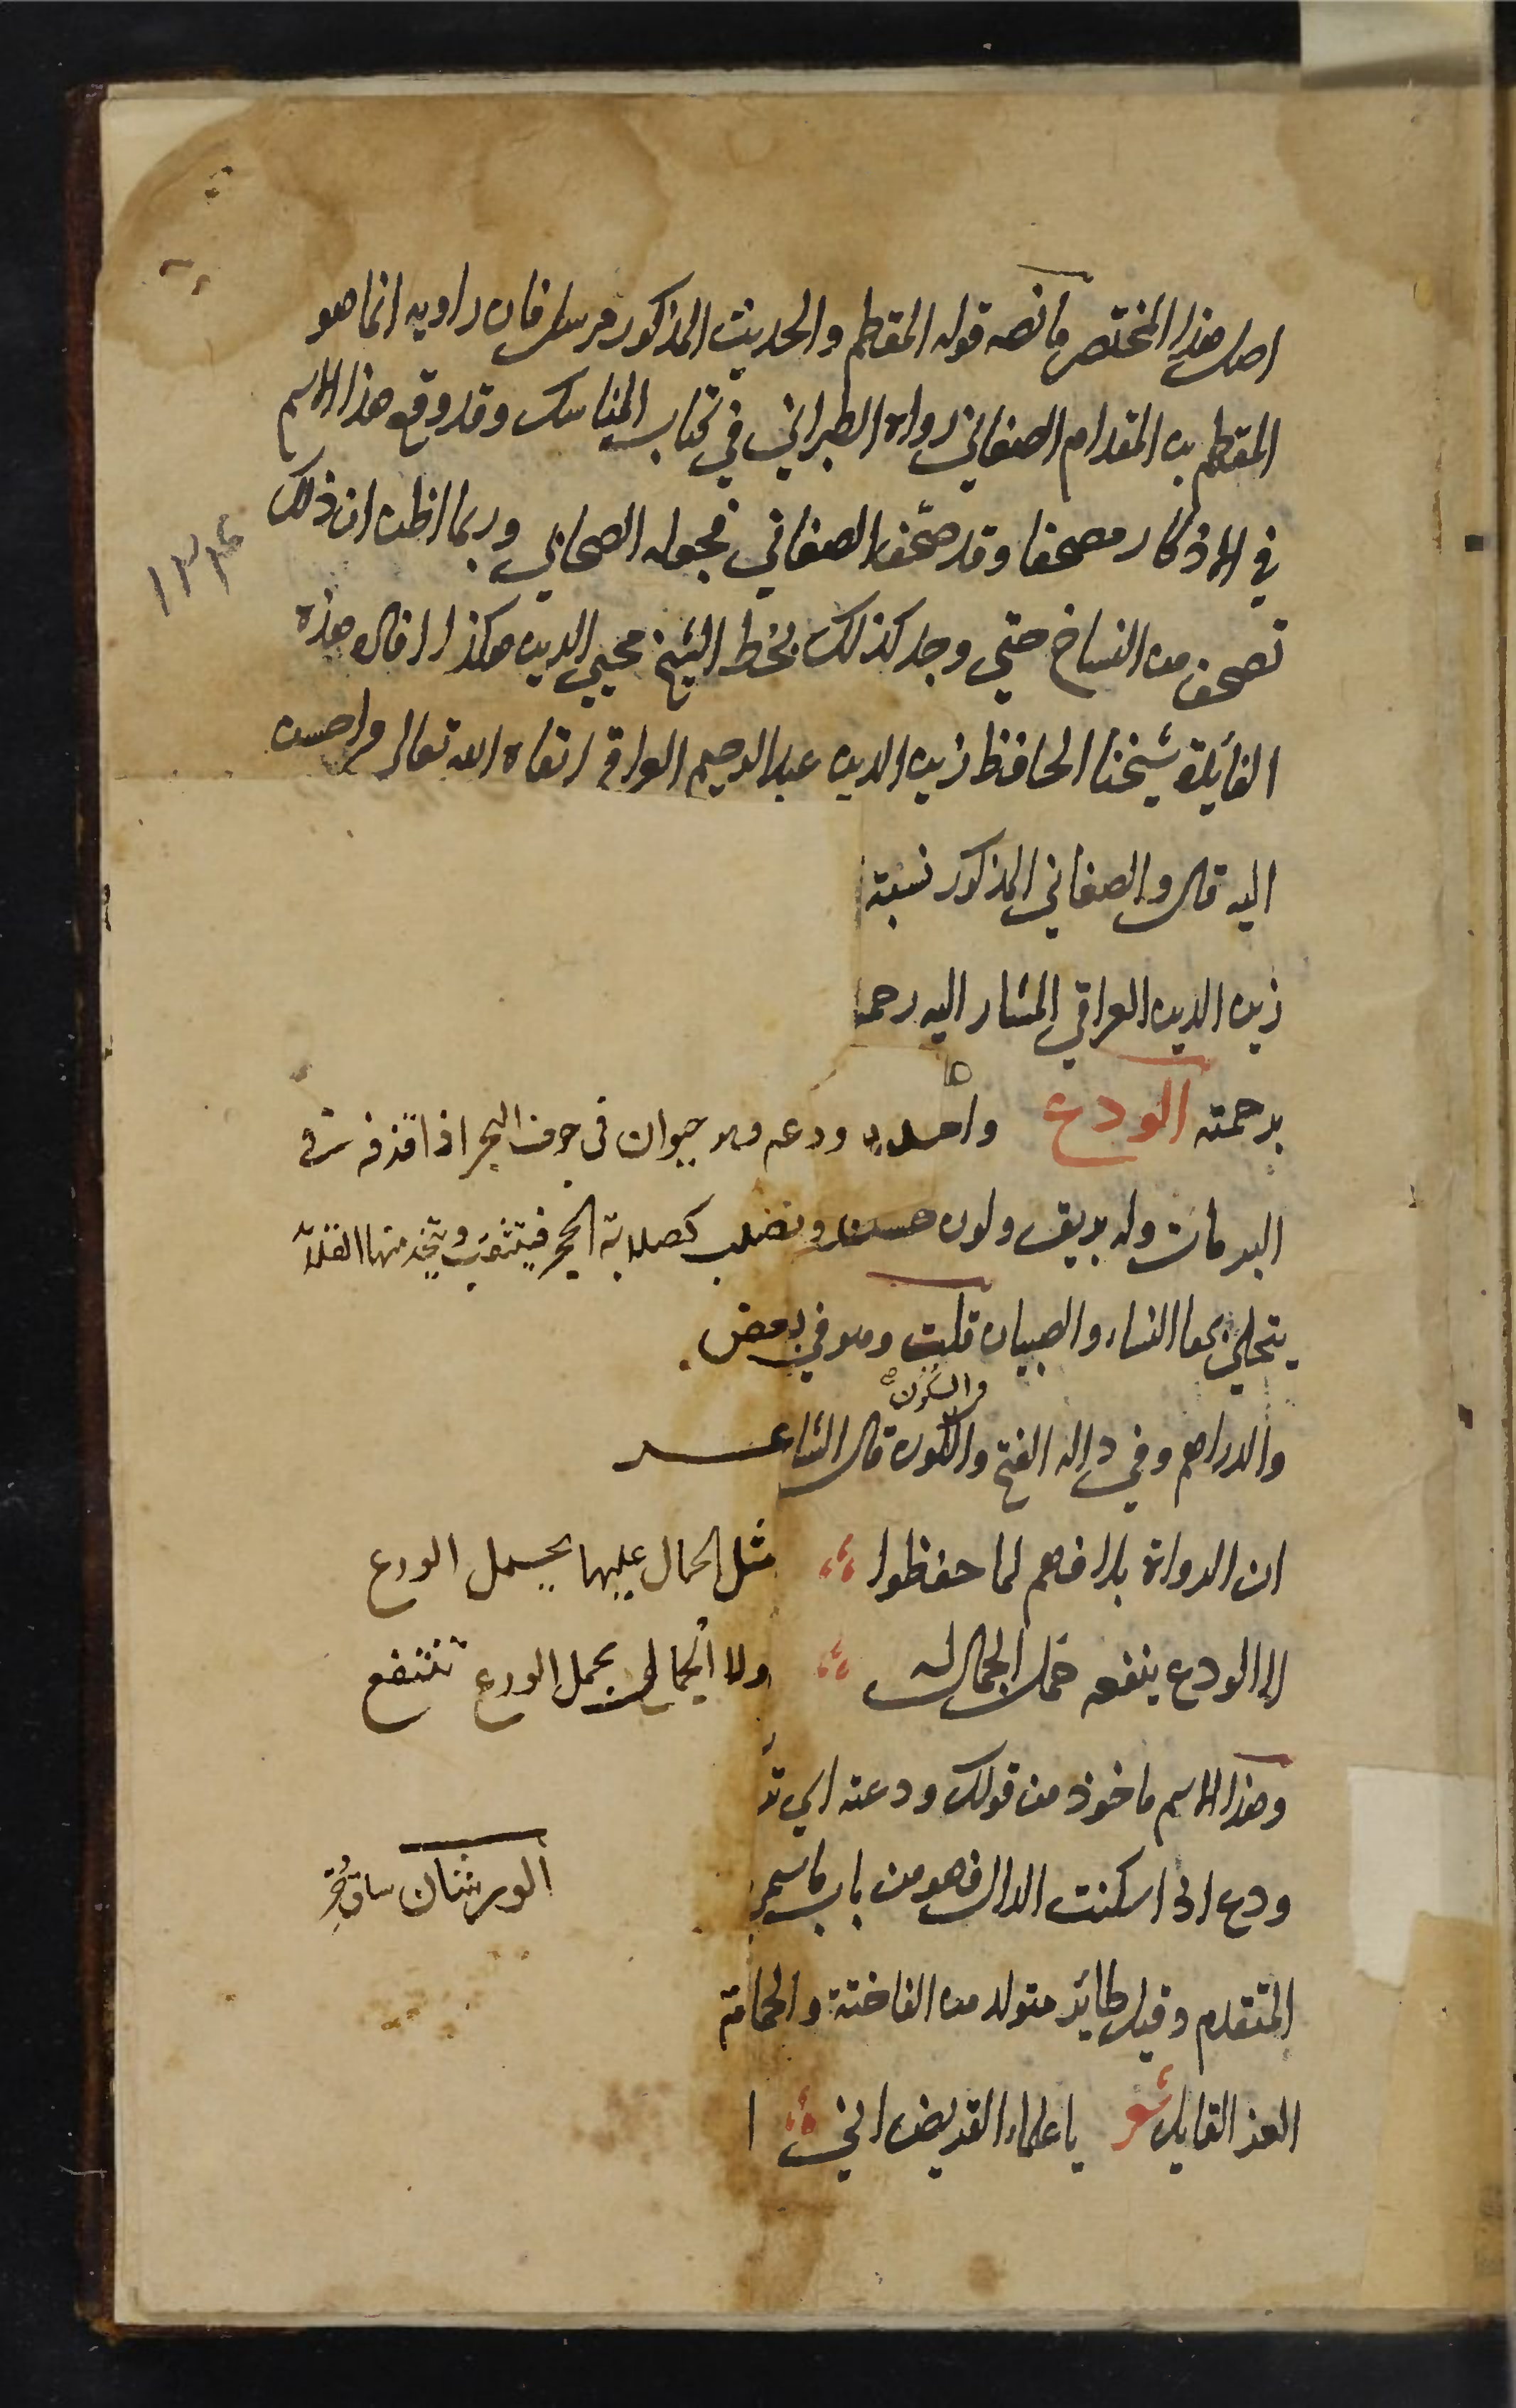 اصل هذا المختصر ما نصه قوله المقطم والحديث المذكور مرسل فان راويه انما هو
المقطم بن المقدام الصنعاني رواه الطبراني في كتاب المناسك وقد وقع هذا الاسم
في الاذكار مصحفا وقد صحّف الصنعاني فجعله الصحابي وربما اظن ان ذلك
تصحف من النساخ حتي وجد كذلك بخط الشيخ محيي الدين هكذا افال هذه
الفايلة شيخنا الحافظ زين الدين عبد الرحيم العراقي ابقاه الله تعالى واحسن
اليه قال والصنعاني المذكور نسبة
زين الدين العراقي المشار اليه رحمه
برحمته الودع واحده ودعه وهو حيوان في جوف البحر اذا قذفه في
البر مات وله بريق ولون حسن ويصلب كصلابة الحجر فيثقب ويتخذ منها القلائد
يتحلي بها النساء والصبيان قلت وهو في بعض
والسكون
والدراهم وفي داله الفتح والكون قال الشاعر
ان الرواة بلا فهم لما حفظوا مثل الجمال عليها يحمل الودع
لا الودع ينفعه حمل الجمال له ولا الجمال بحمل الودع تنتفع
وهذا الاسم ماخوذ من قولك ودعته اي
ودع اذا اسكنت الدال فهو من باب ما سمي
الورشان ساق حُر
المتقدم وقيل طائر متولد من الفاختة والحمامة
العز القايل شعر يا علماء القريض اني